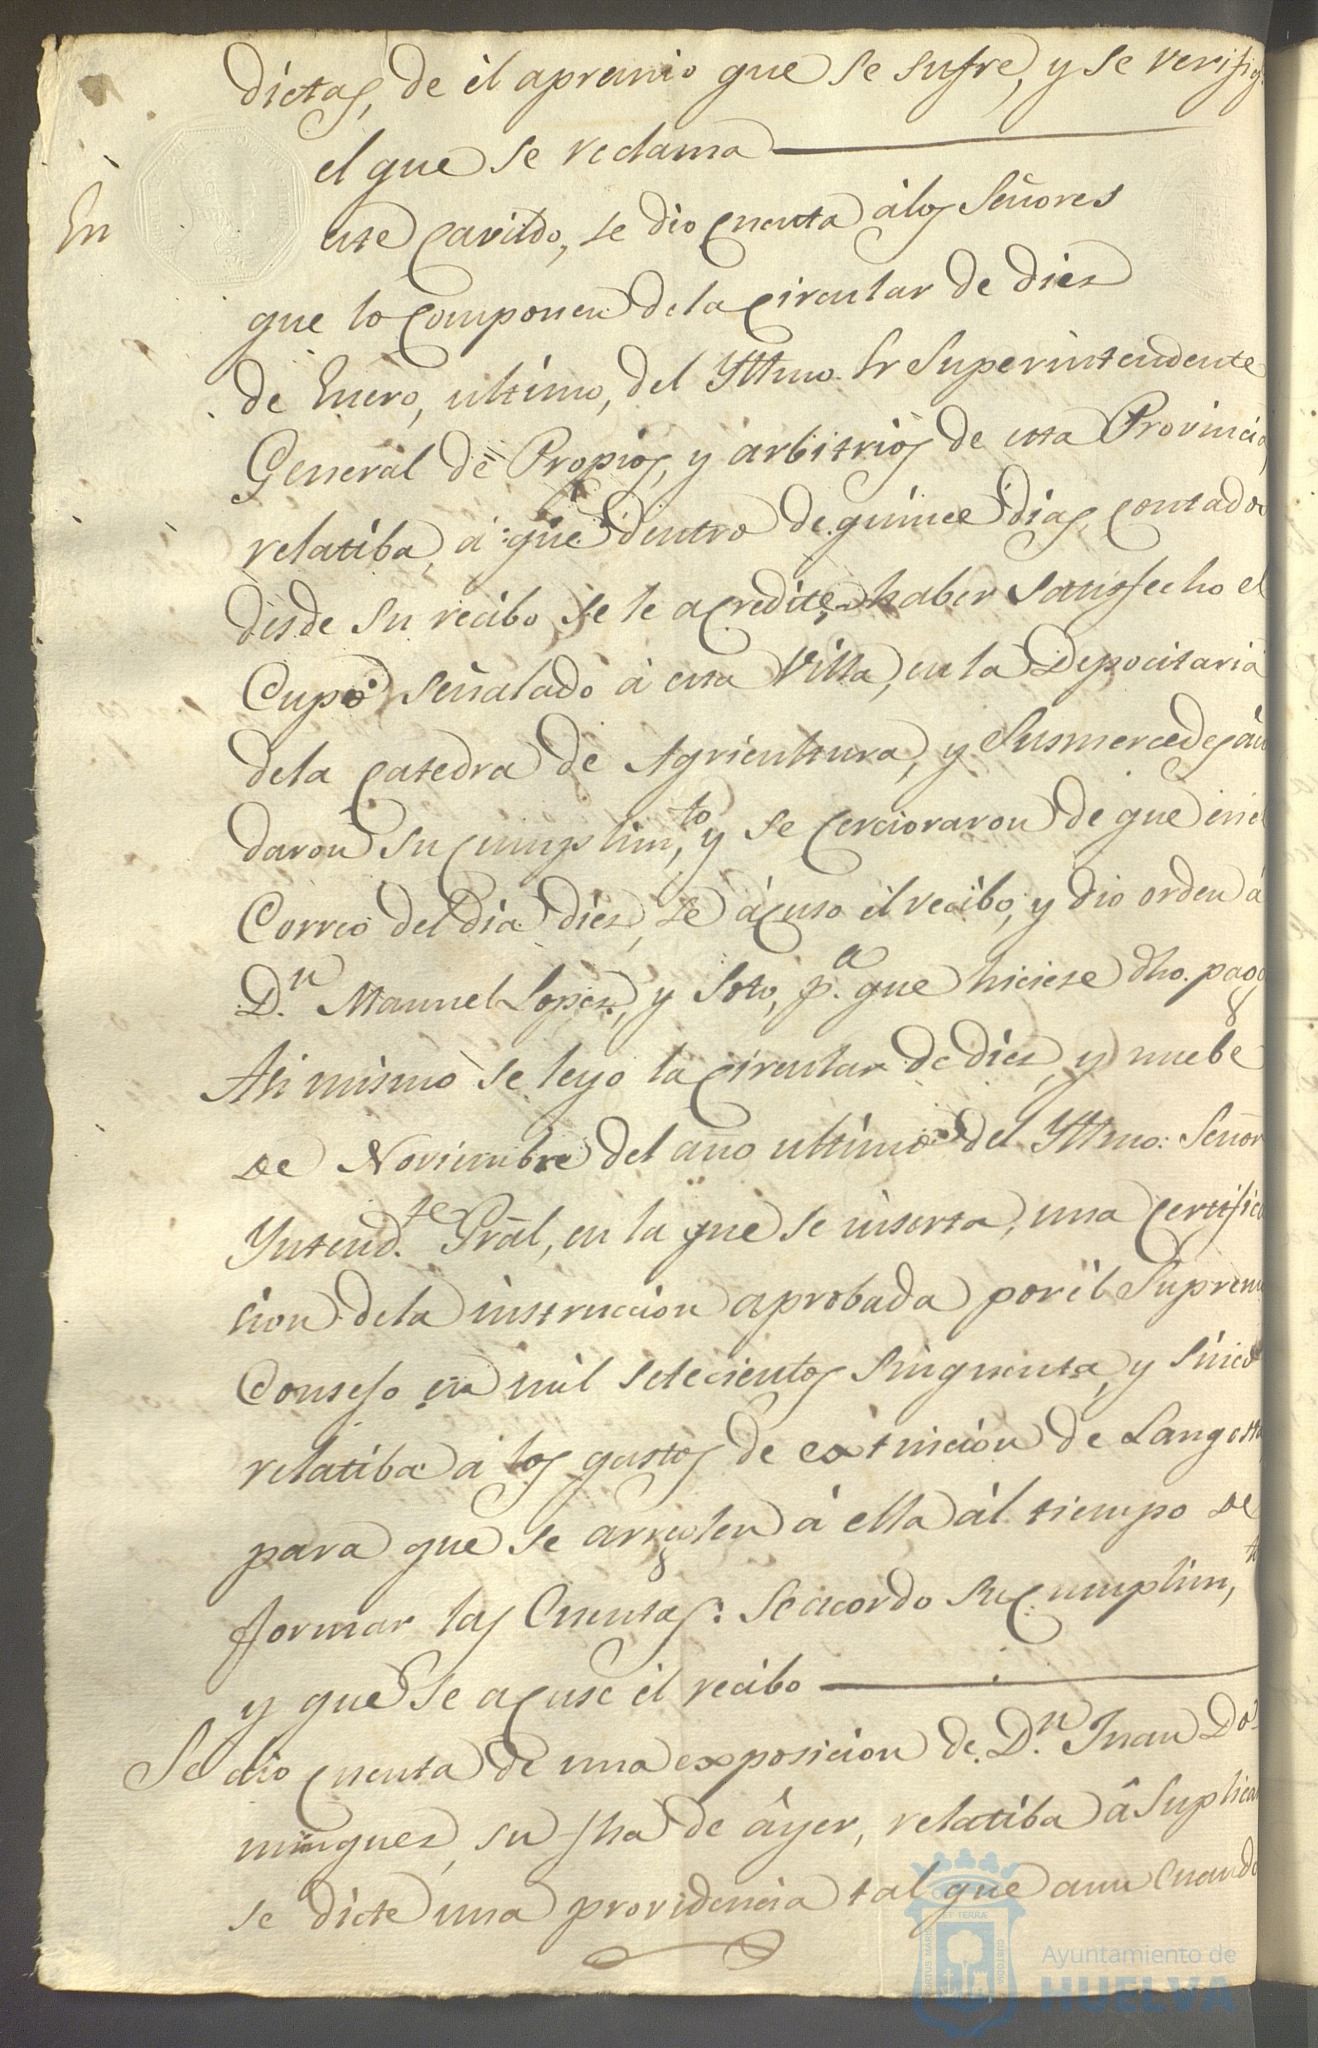 dictas, de él apremio que se sufre, y se verifiq.
el que se reclama
En este Cavildo, se dio cuenta álos Señores
que lo componen dela Circular de diez
de Enero, ultimo, del Yltmo. Sr Superintendente
General de Propios, y arbitrios de esta Provincia,
relatiba, á que dentro de quince dias, contados
desde su recibo se le acredite, haber satisfecho el
Cupo señalado á esta Villa, en la Depocitaria
dela Catedra de Agricultura, y Susmercedes áu
daron su cumplim,to y se cercioraron de que en el
Correo del dia diez, se ácuso él recibo, y dio orden á
D.n Manuel Lopez, y Soto, p.a que hiciese dho. pago
Asi mismo se leyo la circular de diez, y nuebe
de Noviembre del año ultimo del Yltmo: Señor
Yntend.te Gral, en la que se inserta, una Certifica
cion dela instruccion aprobada por él Supremo
Consejo en mil setecientos Sinquenta, y Sinco
relatiba á los gastos de extincion de Langosta
para que se arreglen á ella ál tiempo de
formar las Cuentas: Se acordo su Cumplim,to
y que se acuse él recibo
Se dio cuenta de una exposicion de D.n Juan Do
minguez, su fha de áyer, relatiba â Suplica
se dicte una providencia tal que aun cuando
Ayuntamiento de
HUELVA